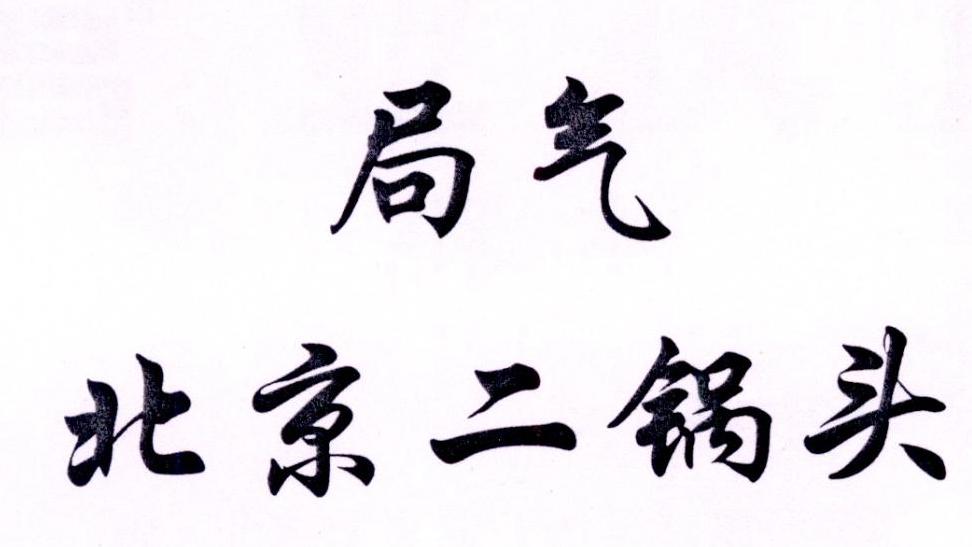 局气
北京二锅头